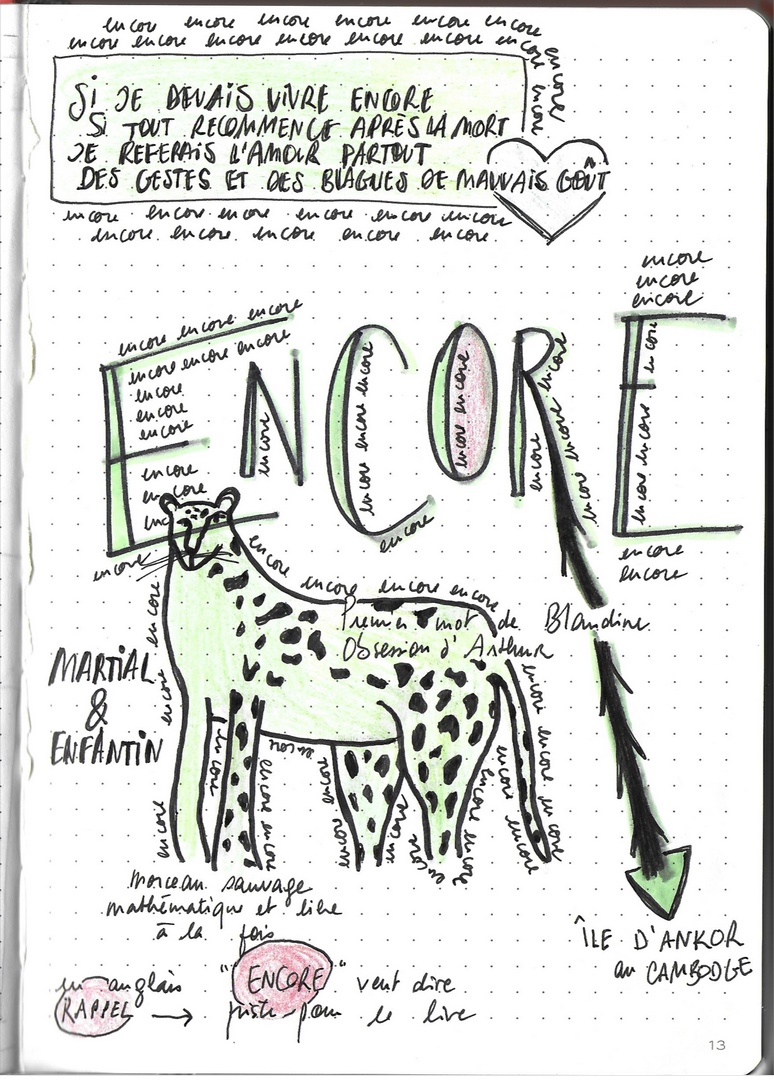 encore encore encore encore encore encore
encore encore encore encore encore encore encore
encore encore
encore
SI JE DEVAIS VIVRE ENCORE
SI TOUT RECOMMENCE APRÈS LA MORT
JE REFERAIS L'AMOUR PARTOUT
DES GESTES ET DES BLAGUES DE MAUVAIS GOÛT
encore encore encore encore encore encore
encore encore encore encore encore
encore
encore
encore
encore encore encore
encore encore encore
encore
encore
encore
encore
encore
ENCORE
encore
encore encore encore
encore
encore encore encore
encore
encore encore encore encore
encore
encore encore encore
encore
encore
encore
encore encore encore encore
Premier mot de Blandine
Obsession d'Arthur
MARTIAL
&
ENFANTIN
encore encore encore
encore
encore
encore encore
encore encore
encore
encore encore
encore encore
encore encore encore
morceau sauvage
mathématique et libre
à la fois
ÎLE D'ANKOR
au CAMBODGE
en anglais "ENCORE" veut dire
RAPPEL → juste pour le live
13